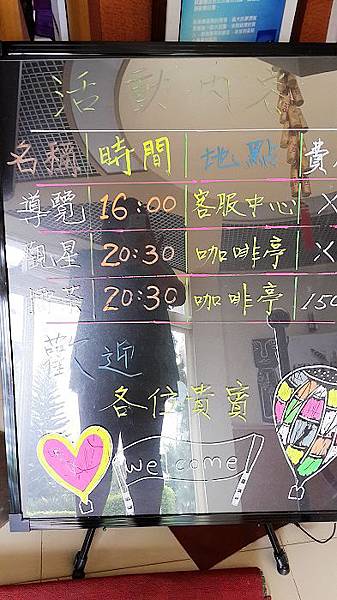 活動內容
名稱 時間 地點 費
導覽 16:00 客服中心 X
觀星 20:30 咖啡亭 X
20:30 咖啡亭 150
歡迎
各位貴賓
welcome